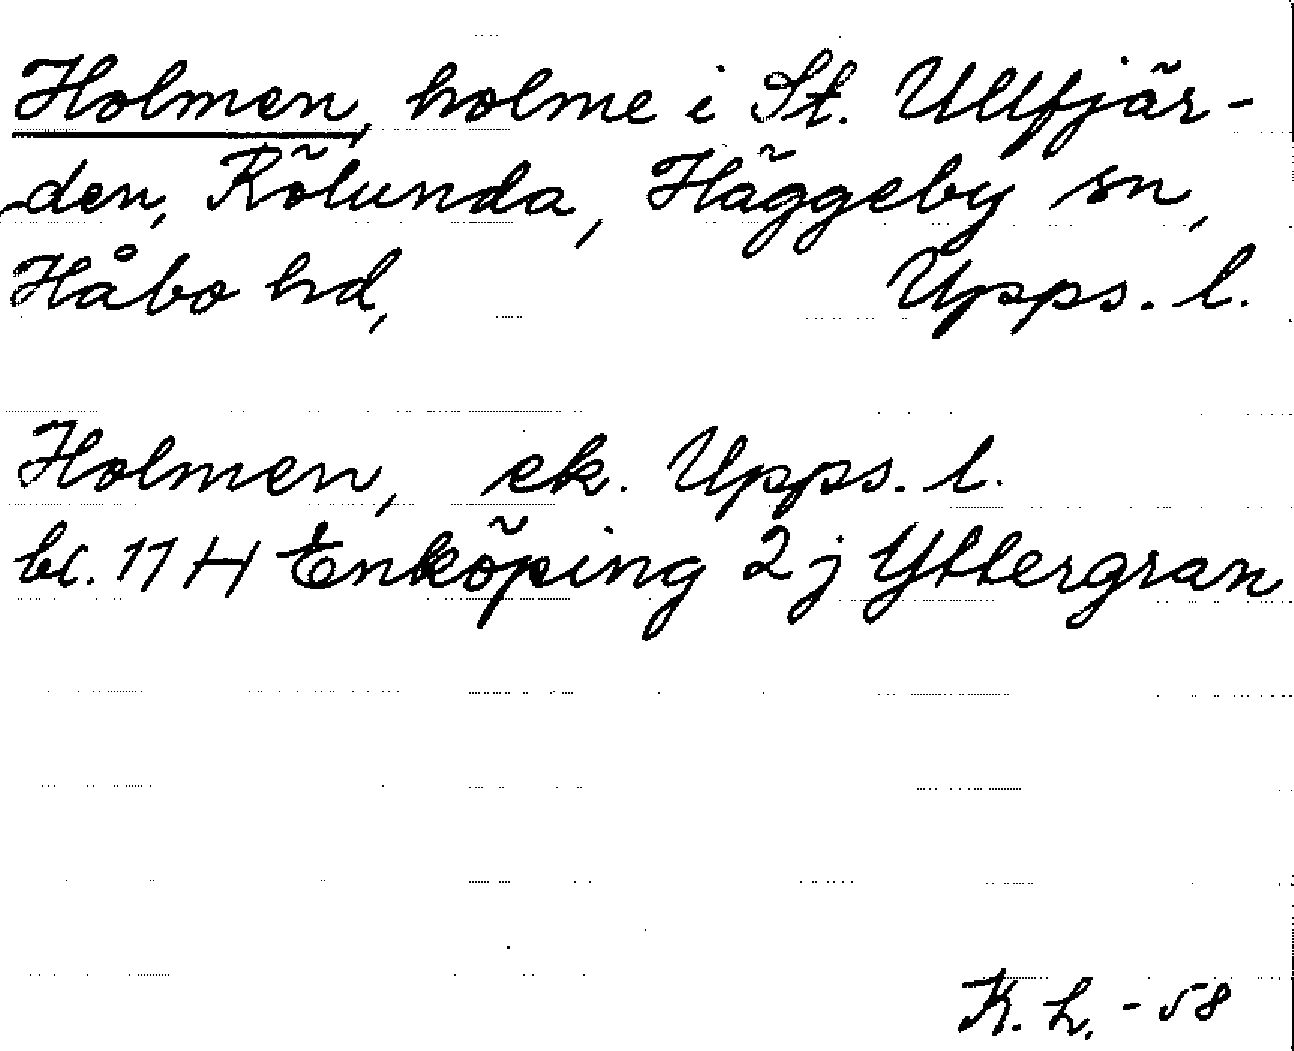 Holmen, holme i St. Ullfjär-
den, Rölunda, Häggeby sn,
Håbo hd, Upps. l.
Holmen, ek. Upps. l.
bl. 11 H Enköping 2 j Yttergran
K. L. -58